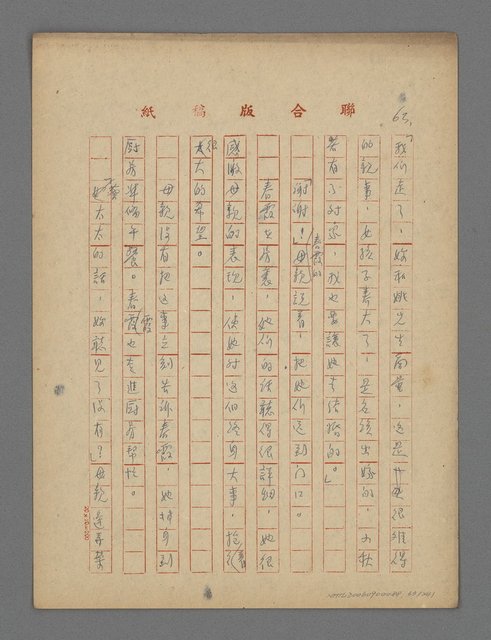 聯合版稿紙
65,
「我們走了，妳和姚先生商量，這是件很難得
的親事，女孩子春大了，是名須出嫁的，小秋
若有不对，我也要讓她去結婚的。」
「謝謝！」春霞的母親說着，把她們送到门口。
春霞在房裏，她们的話聽得很詳細，她很
感激母親的表現，使她对这個終身大事，抱着
很大的希望。
母親沒有把这事立刻告訴春霞，她轉身到
厨房準備午餐。春霞也走進厨房幫忙。
「蔡太太的話，妳聽見了沒有！」母親邊弄菜